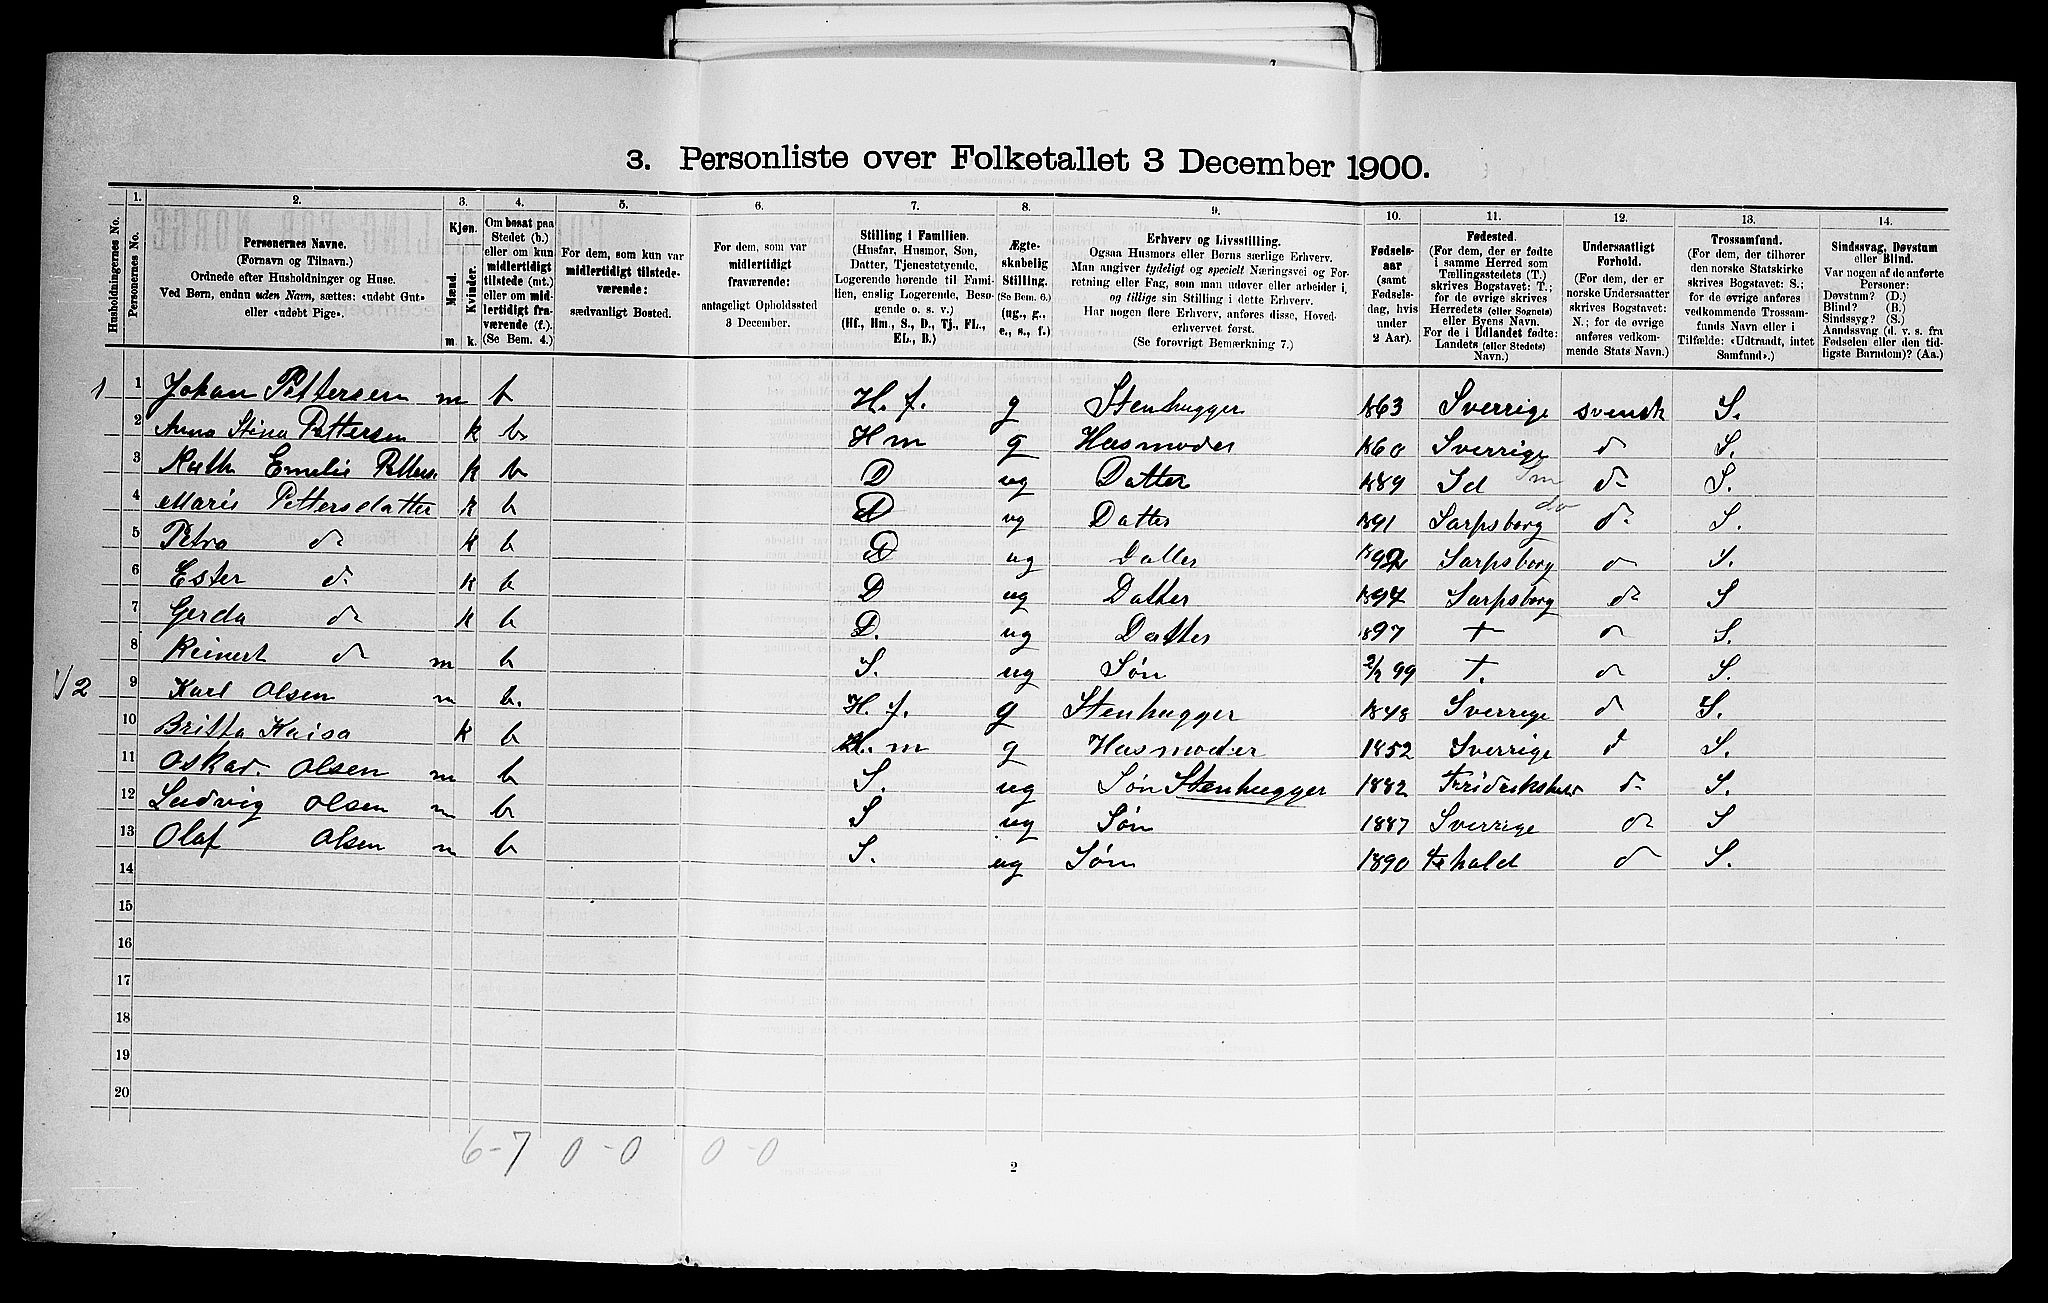 3. Personliste over Folketallet 3 December 1900.
Husholdningernes No.
1. Personernes No.
2. Personernes Navne. (Fornavn og Tilnavn.) Ordnede efter Husholdninger og Huse. Ved Børn, endnu uden Navn, sættes: «udøbt Gut» eller «udøbt Pige».
3. Kjøn. Mænd. Kvinder. m. k.
4. Om bosat paa Stedet (b.) eller om kun midlertidigt tilstede (mt.) eller om midlertidigt fraværende (f.). (Se Bem. 4.)
5. For dem, som kun var midlertidigt tilstedeværende: sædvanligt Bosted.
6. For dem, som var midlertidigt fraværende: antageligt Opholdssted 3 December.
7. Stilling i Familien. (Husfar, Husmor, Søn, Datter, Tjenestetyende, Logerende hørende til Familien, enslig Logerende, Besøgende o. s. v.) (Hf., Hm., S., D., Tj., FL., EL., B.)
8. Ægteskabelig Stilling. (Se Bem. 6.) (ug., g., e., s., f.)
9. Erhverv og Livsstilling. Ogsaa Husmors eller Børns særlige Erhverv. Man angiver tydeligt og specielt Næringsvei og Forretning eller Fag, som man udøver eller arbeider i, og tillige sin Stilling i dette Erhverv. Har nogen flere Erhverv, anføres disse, Hovederhvervet først. (Se forøvrigt Bemærkning 7.)
10. Fødselsaar (samt Fødselsdag, hvis under 2 Aar).
11. Fødested. (For dem, der er fødte i samme Herred som Tællingsstedets (T.) skrives Bogstavet: T.; for de øvrige skrives Herredets (eller Sognets) eller Byens Navn. For de i Udlandet fødte: Landets (eller Stedets) Navn.)
12. Undersaatligt Forhold. (For dem, der er norske Undersaatter skrives Bogstavet: N.; for de øvrige anføres vedkommende Stats Navn.)
13. Trossamfund. (For dem, der tilhører den norske Statskirke skrives Bogstavet: S.; for de øvrige anføres vedkommende Trossamfunds Navn eller i Tilfælde: «Udtraadt, intet Samfund».)
14. Sindssvag, Døvstum eller Blind. Var nogen af de anførte Personer: Døvstum? (D.) Blind? (B.) Sindssyg? (S.) Aandssvag (d. v. s. fra Fødselen eller den tidligste Barndom)? (Aa.)
1 1 Johan Pettersen m b H. f. g Stenhugger 1863 Sverrige svensk S.
2 Anna Stina Pettersen k b H m g Husmoder 1860 Sverrige d S.
3 Ruth Emelie Petters k b D ug Datter 1889 Id d S.
4 Marie Pettersdatter k b D ug Datter 1891 Sarpsborg d S.
5 Petra d k b D ug Datter 1892 Sarpsborg d S.
6 Ester d k b D ug Datter 1894 Sarpsborg d S
7 Gerda d k b D. ug Datter 1897 T d S.
8 Reinert d m b S. ug Søn 2/7 99 T. d S.
2 9 Karl Olsen m b. H. f. g Stenhugger 1848 Sverrige d S.
10 Britta Kaisa k b H. m g Husmoder 1852 Sverrige d S.
11 Oskar. Olsen m b S. ug Søn Stenhugger 1882 Fridrikshald d S.
12 Ludvig Olsen m b S ug Søn 1887 Sverrige d S
13 Olaf Olsen m b S. ug Søn 1890 Frhald d S.
14
15
16
17
18
19
20
6-7 0-0 0-0
2